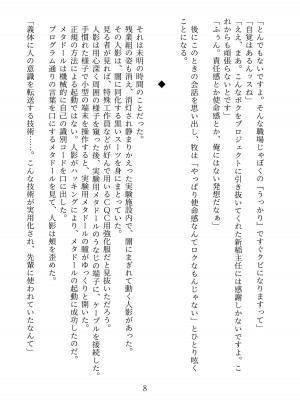 「とんでもないですよ。そんな職場じゃぼくの「うっかり」ですぐクビになりますって」
「自覚はあるんッスね」
「ええ、まあ。そんなボクをプロジェクトに引き抜いてくれた新楯主任には感謝しかないですよ。こ
れからも頑張らないとです」
「ふうん。責任感とか使命感とか、俺にはない発想だなぁ」
後にこのときの会話を思い出し、牧は「やっぱり使命感なんてロクなもんじゃない」とひとり呟く
ことになる。
◆
それは未明の時間のことだった。
残業組の姿も消え、消灯され静まりかえった実験施設内で、闇にまぎれて動く人影があった。
その人影は、闇に同化する黒いスーツを身にまとっていた。
見る者が見れば、特殊工作員などが好んで用いるCQC用強化服だと見抜いただろう。
人影は用心深く周囲の様子を窺った後、実験用メタドールのうなじの端子に、ケーブルを接続した。
手慣れた様子で小型の端末を操作すると、実験用メタドールの瞳がゆっくりと開いた。
正規の方法による起動ではない。人影がハッキングにより、メタドールの起動に成功したのだ。
メタドールは機械的に自己の識別コードを口に出した。
プログラム通りの言葉を口にするメタドールを見て、人影は頬を歪めた。
「義体に人の意識を転送する技術……。こんな技術が実用化され、先輩に使われていたなんて」
8